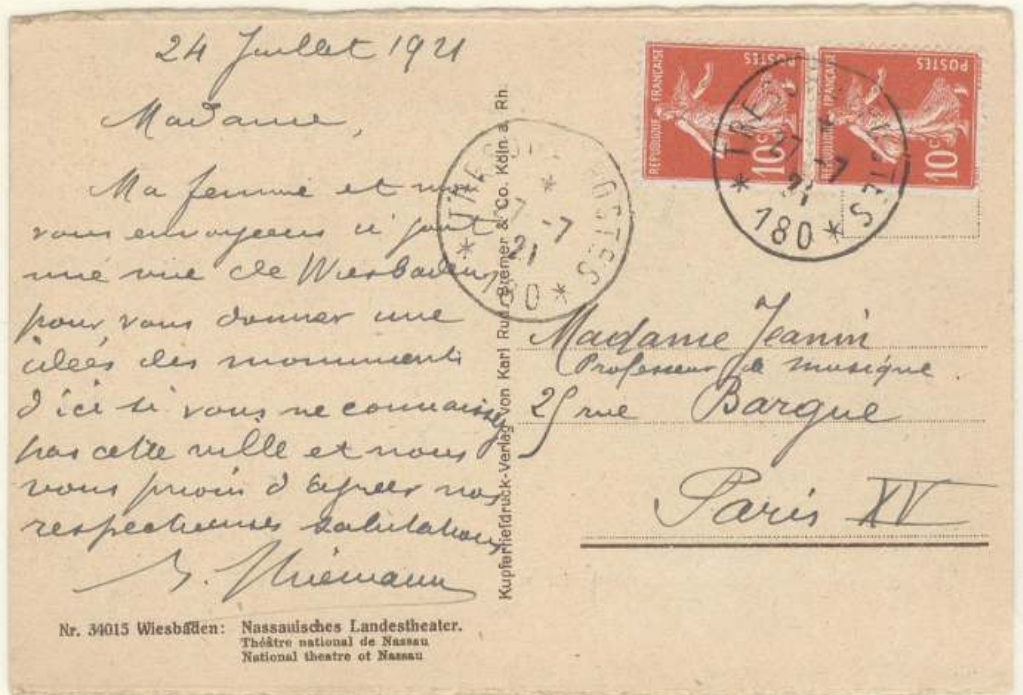 24 Juillet 1921
Madame,
Ma femme et moi
vous envoyons ci joint
une vue de Wiesbaden
pour vous donner une
idées des monuments
d'ici si vous ne connaissez
pas cette ville et nous
vous prions d'agréer nos
respectueuses salutations
Nr. 34015 Wiesbaden: Nassauisches Landestheater.
Théâtre national de Nassau
National theatre of Nassau
Kupfertiefdruck-Verlag von Karl Rud. Bremer & Co. Köln a. Rh.
POSTES
REPUBLIQUE FRANÇAISE
10c
POSTES
REPUBLIQUE FRANÇAISE
10c
POSTES
* 180 *
27 -7
21
POSTES
* 180 *
-7
21
Madame Jeanin
Professeur de musique.
25 rue Bargue
Paris XV